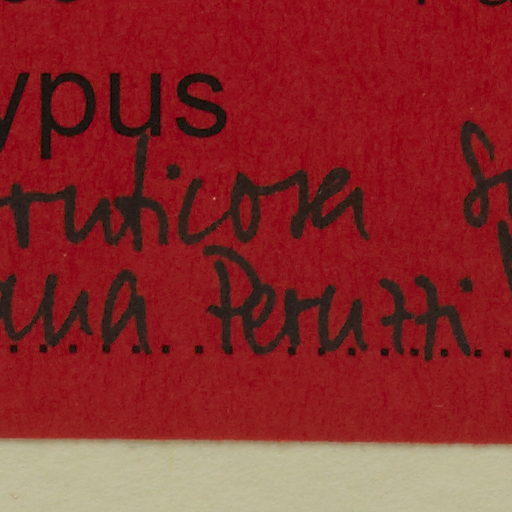 ypus
ruticosa
ana Peruzzi